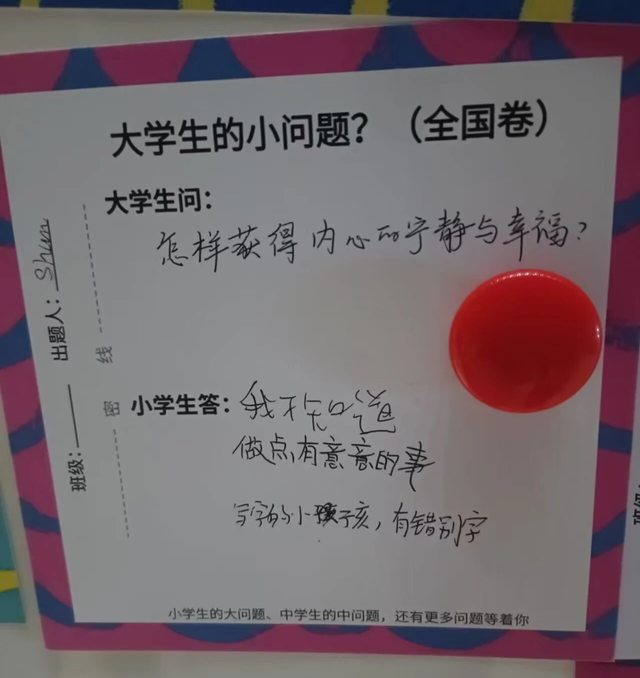 大学生的小问题？（全国卷）
大学生问：
怎样获得内心的宁静与幸福？
出题人：Shun
线
密
班级：
小学生答：我不知道
做点有意意的事
写字的小孩子亥，有错别字
小学生的大问题、中学生的中问题，还有更多问题等着你